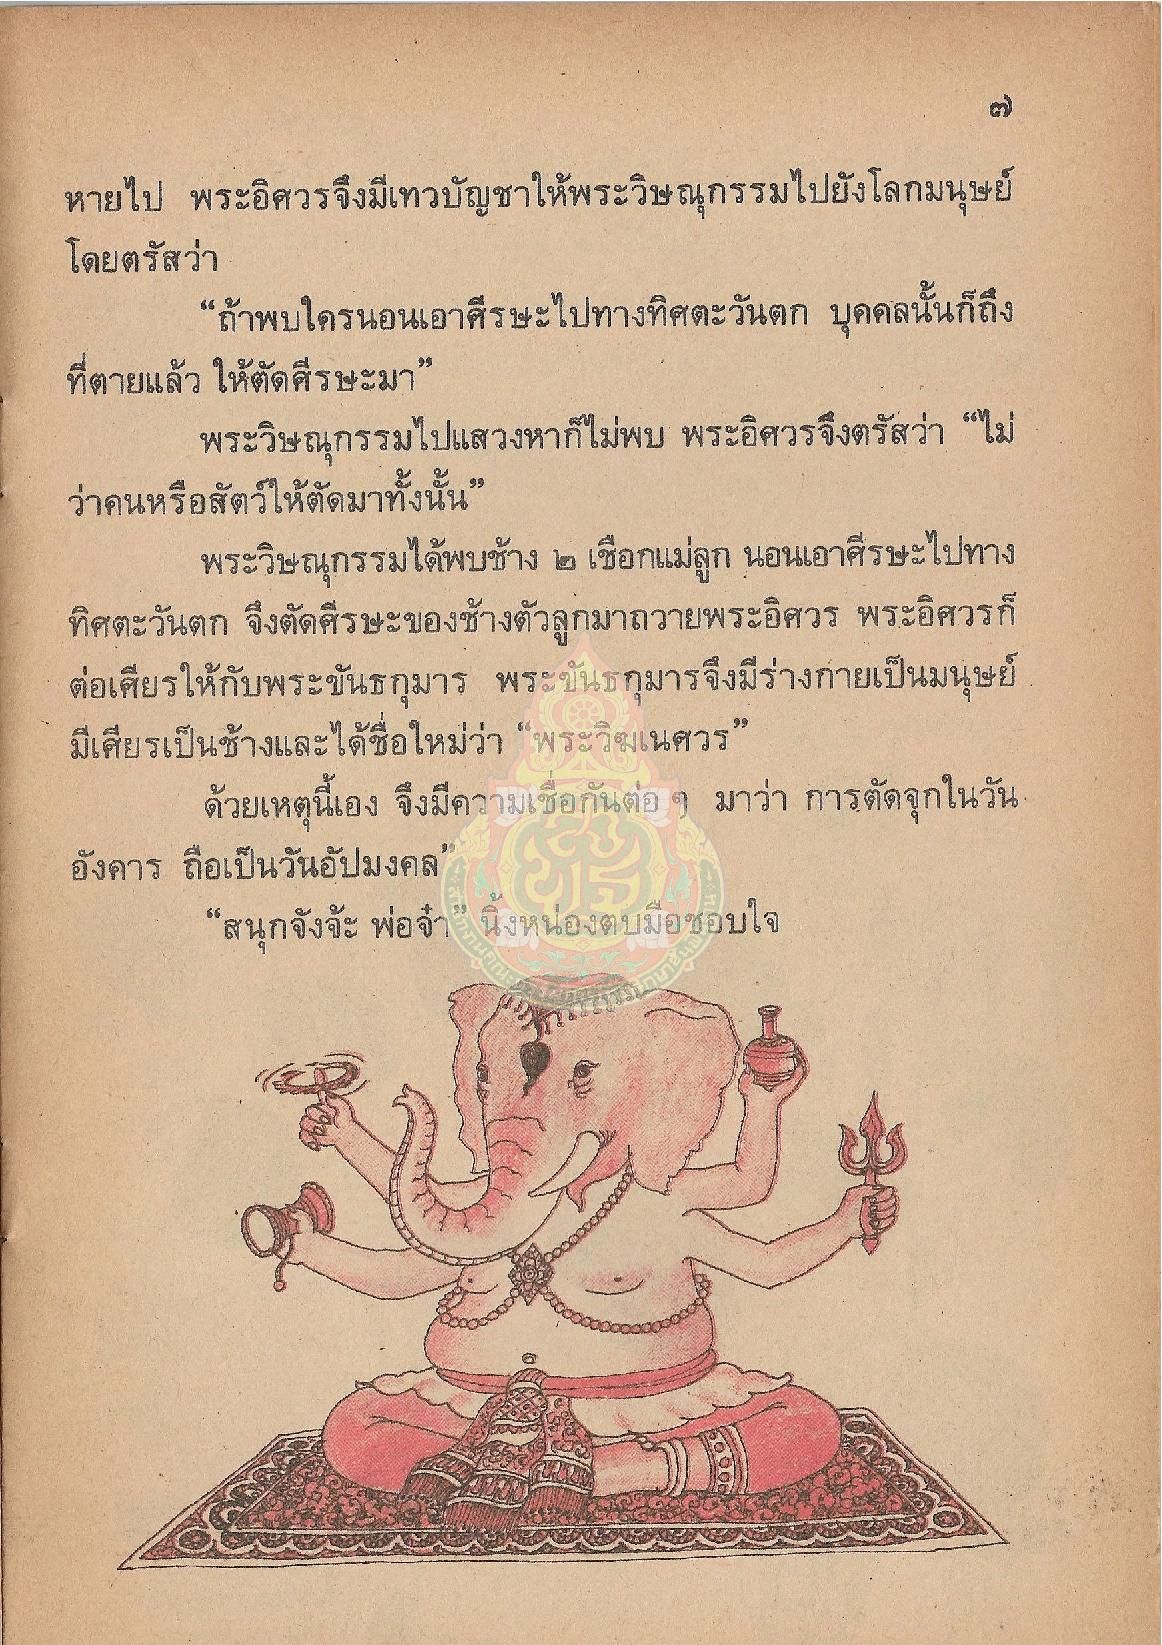 ๗
หายไป พระอิศวรจึงมีเทวบัญชาให้พระวิษณุกรรมไปยังโลกมนุษย์
โดยตรัสว่า
“ถ้าพบใครนอนเอาศีรษะไปทางทิศตะวันตก บุคคลนั้นก็ถึง
ที่ตายแล้ว ให้ตัดศีรษะมา”
พระวิษณุกรรมไปแสวงหาก็ไม่พบ พระอิศวรจึงตรัสว่า “ไม่
ว่าคนหรือสัตว์ให้ตัดมาทั้งนั้น”
พระวิษณุกรรมได้พบช้าง ๒ เชือกแม่ลูก นอนเอาศีรษะไปทาง
ทิศตะวันตก จึงตัดศีรษะของช้างตัวลูกมาถวายพระอิศวร พระอิศวรก็
ต่อเศียรให้กับพระขันธกุมาร พระขันธกุมารจึงมีร่างกายเป็นมนุษย์
มีเศียรเป็นช้างและได้ชื่อใหม่ว่า “พระวิฆเนศวร”
ด้วยเหตุนี้เอง จึงมีความเชื่อกันต่อ ๆ มาว่า การตัดจุกในวัน
อังคาร ถือเป็นวันอัปมงคล”
“สนุกจังจ้ะ พ่อจ๋า” นิ้งหน่องตบมือชอบใจ